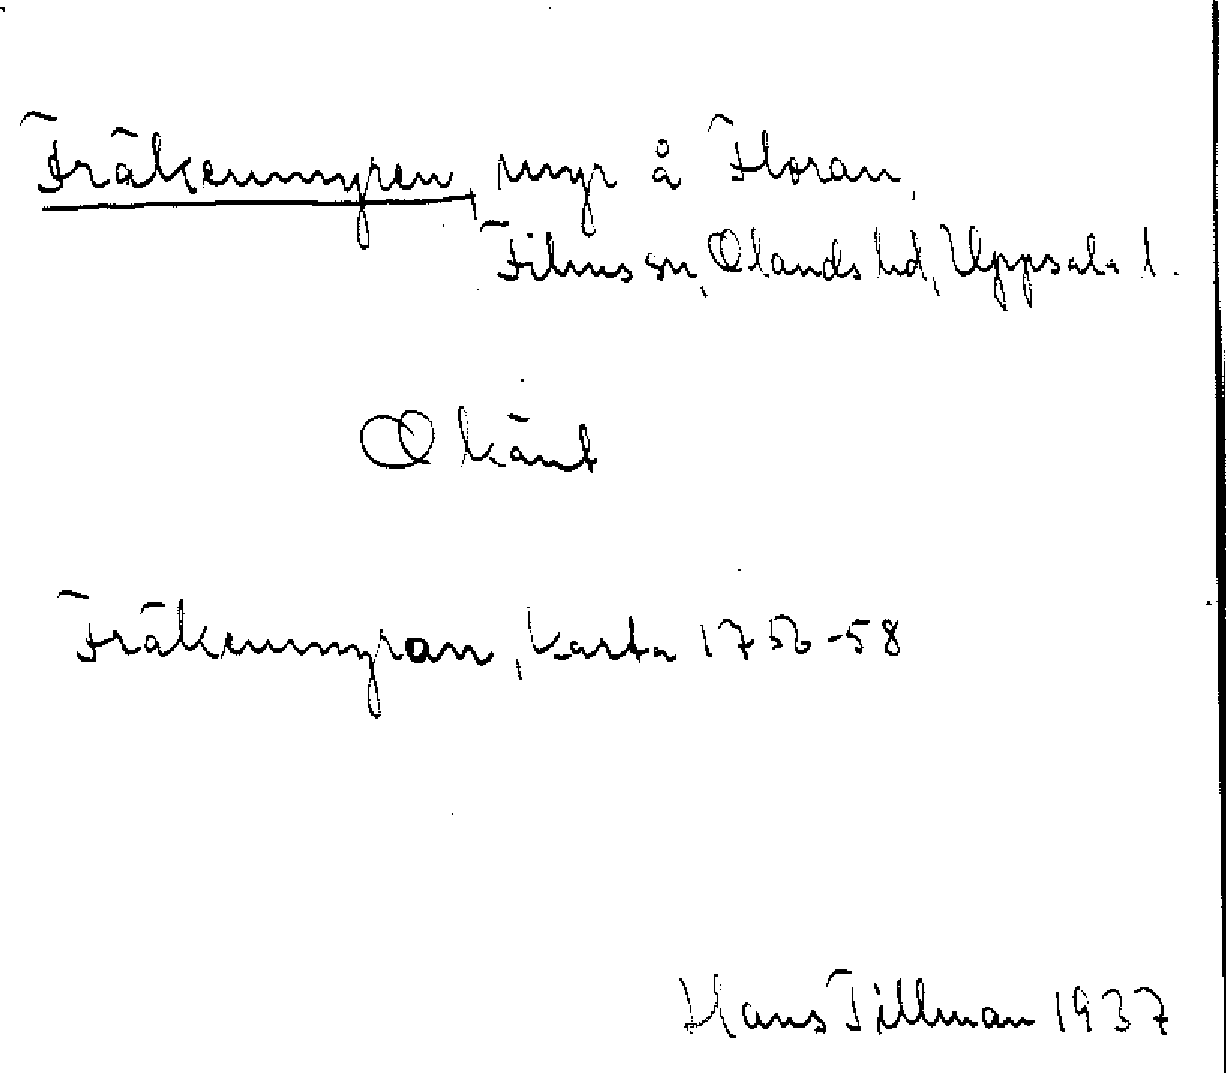 Fräkenmyren, myr å Floran,
Films sn, Olands hd, Uppsala l.
Okänt
Fräkenmyran, karta 1756-58
Hans Tillman 1937